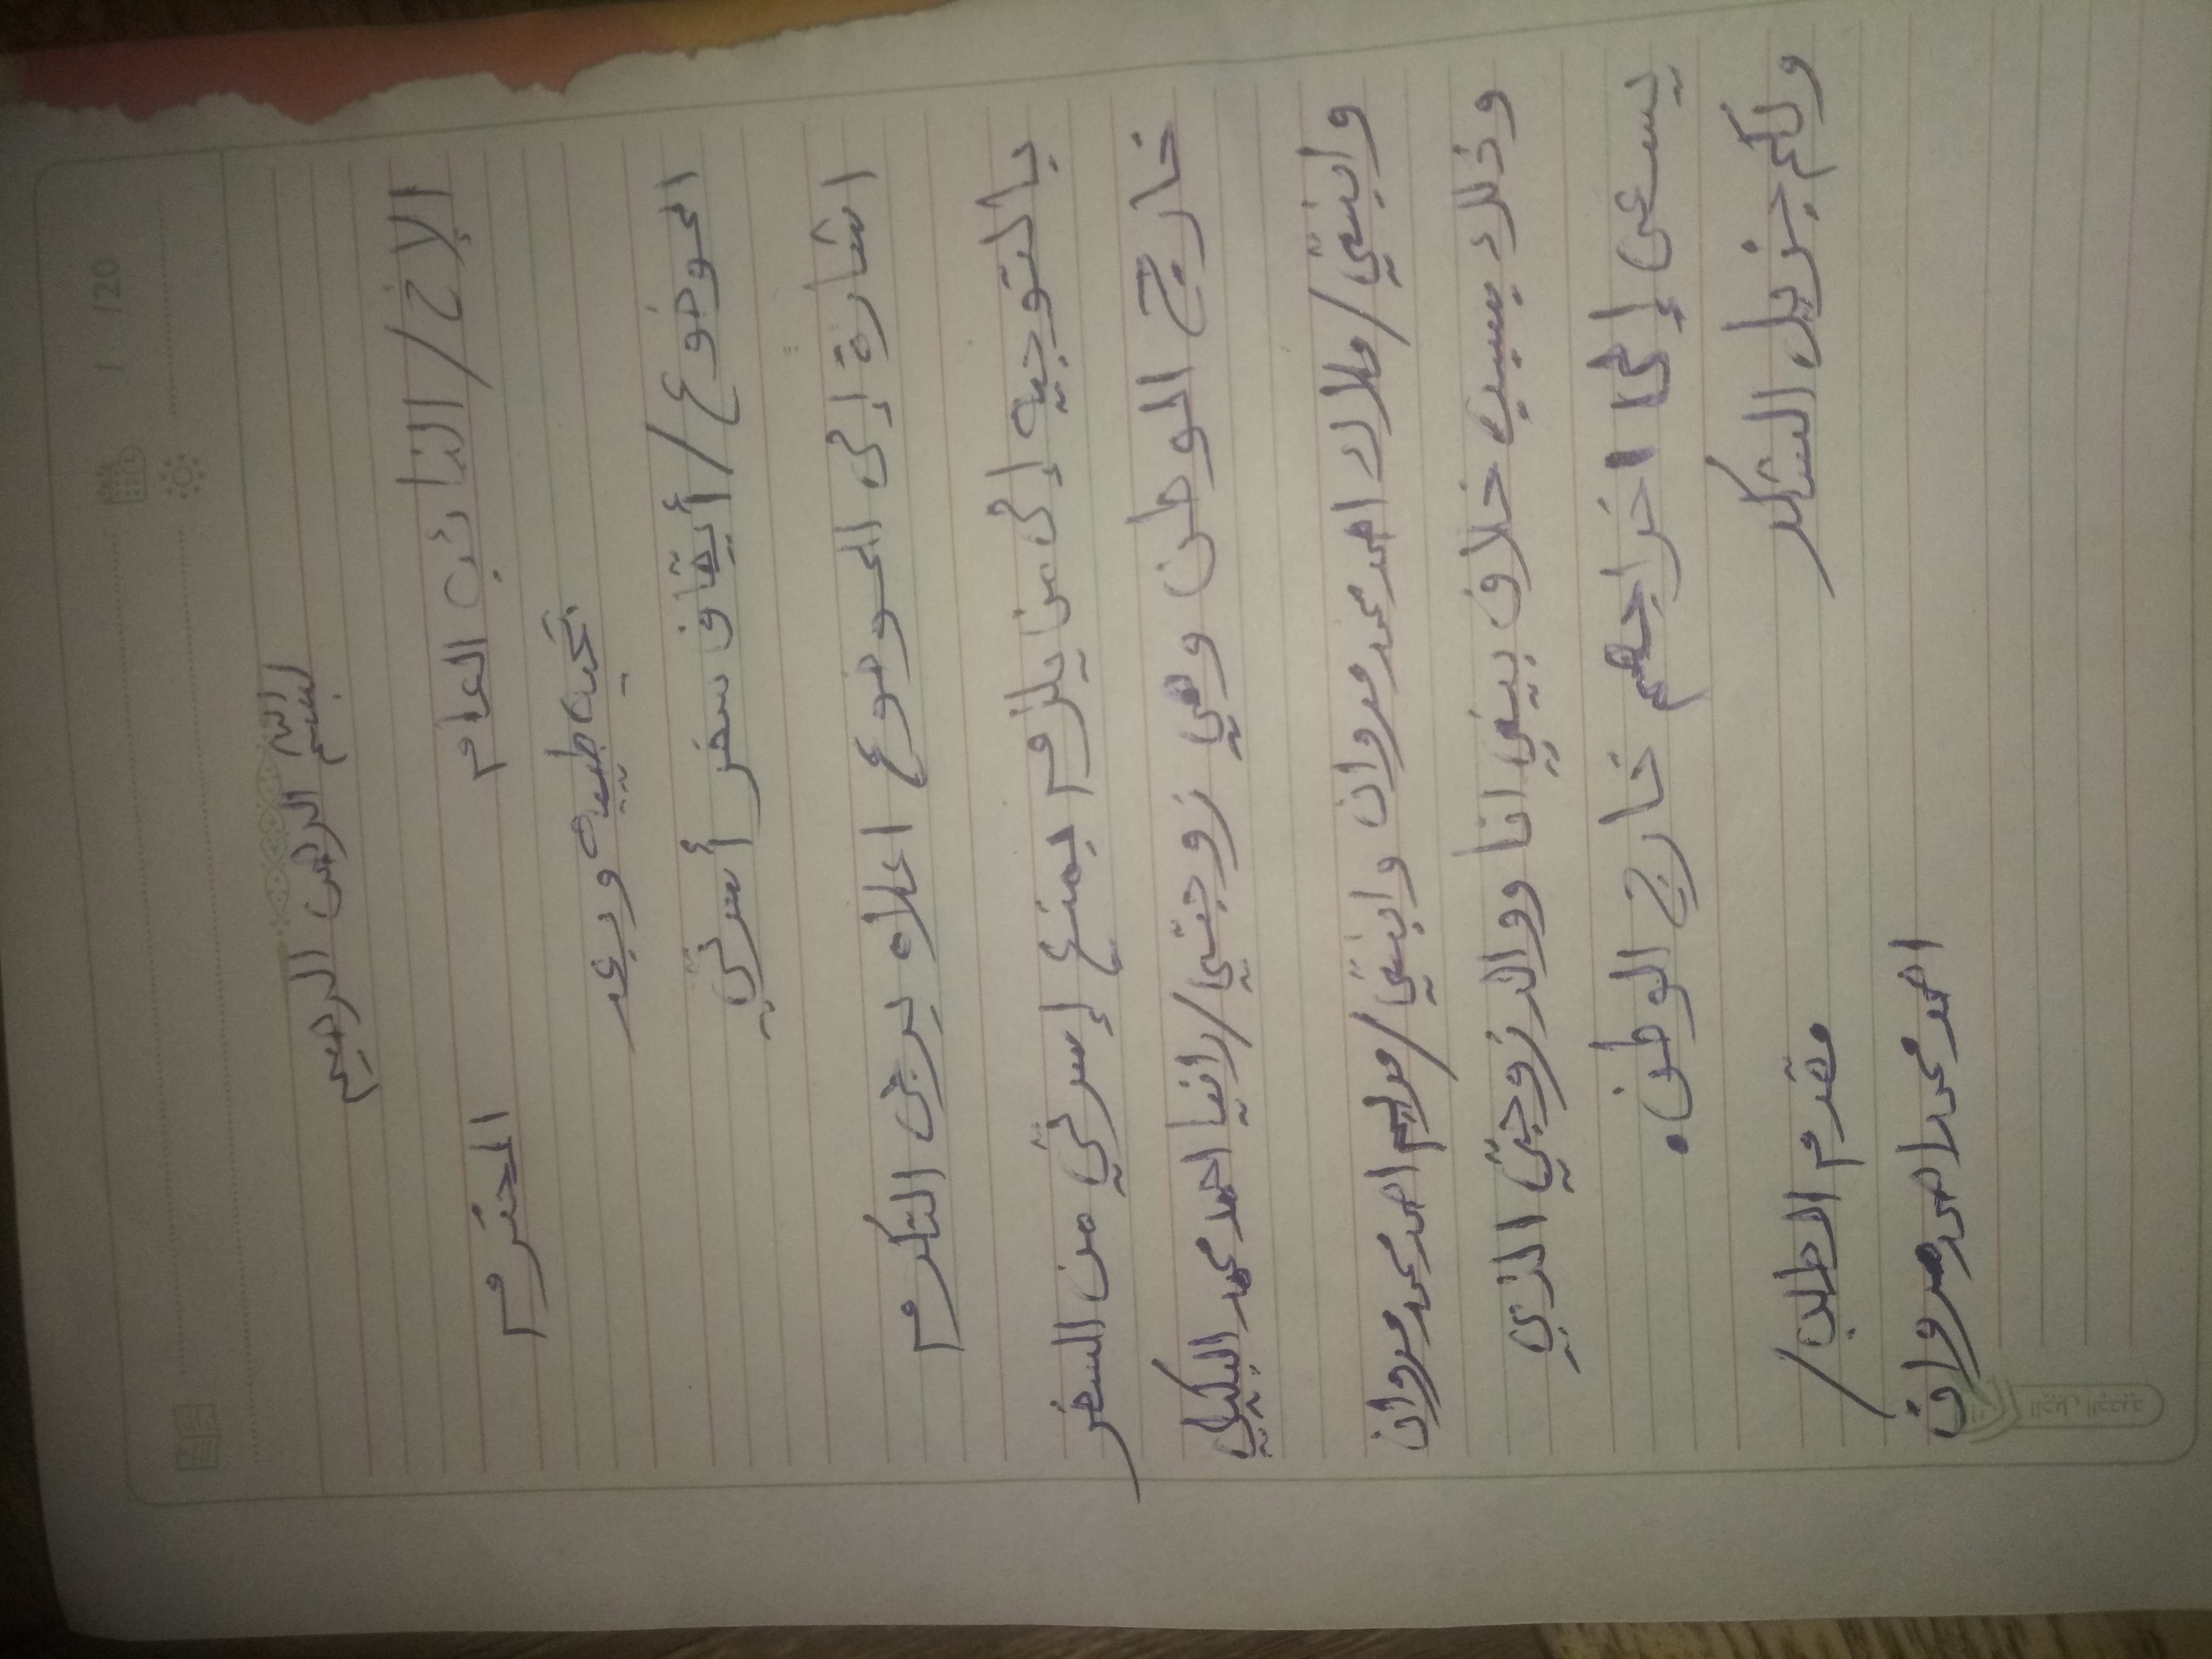 / /20
بسم الله الرحمن الرحيم
الإخ/ النائب العام المحترم
تحيه طيبه وبعد
الموضوع/ أيقاف سفر أسرتي
اشارة إلى الموضوع اعلاه يرجى التكرم
بالتوجيه إلى من يلزم بمنع إسرتي من السفر
خارج الوطن وهي زوجتي/ رانيا احمد محمد البكيلي
وابنتي/ ملاك احمد محمد مروان وابنتي/ مريم احمد محمد مروان
وذلك بسبب خلاف بيني انا ووالد زوجتي الذي
يسعى إلى اخراجهم خارج الوطن.
ولكم جزيل الشكر
مقدم الطلب/
احمد محمد احمد مروان